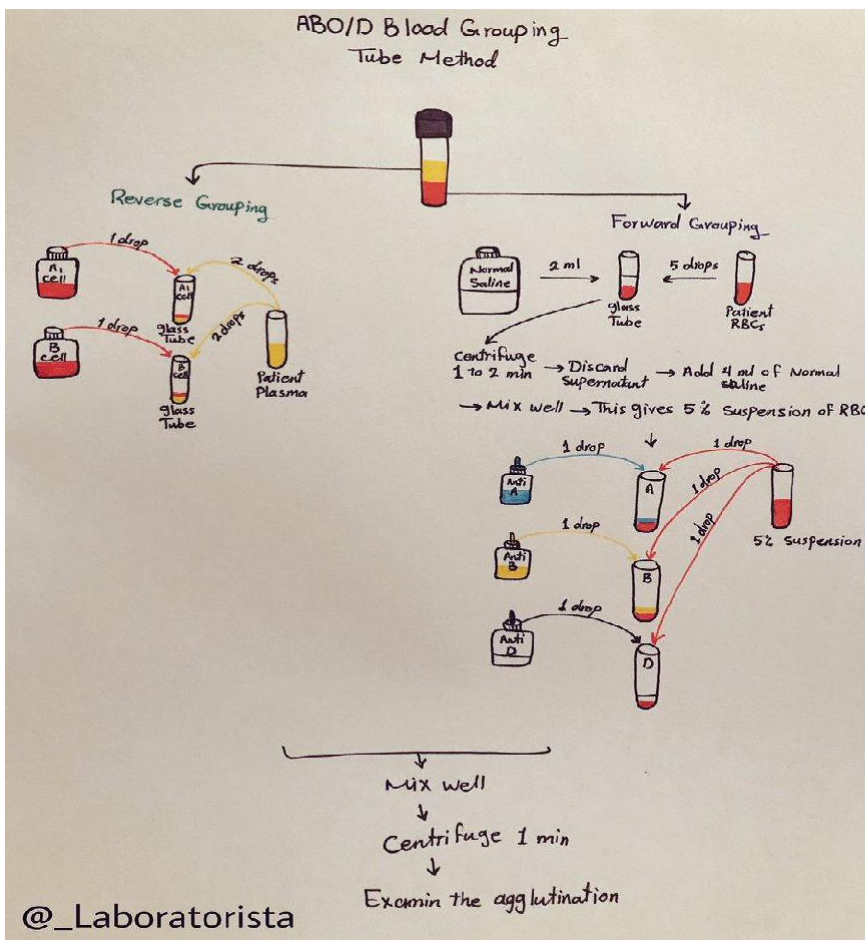 ABO/D Blood Grouping
Tube Method
Reverse Grouping
1 drop
A1
cell
A1
cell
glass
Tube
2 drops
1 drop
B
cell
B
cell
glass
Tube
2 drops
Patient
Plasma
Forward Grouping
Normal
Saline
2 ml
glass
Tube
5 drops
Patient
RBCs
Centrifuge
1 to 2 min → Discard
Supernatant → Add 4 ml of Normal
Saline
→ Mix well → This gives 5% Suspension of RBC
Anti
A
1 drop
A
1 drop
1 drop
1 drop
5% Suspension
Anti
B
1 drop
B
Anti
D
1 drop
D
Mix well
Centrifuge 1 min
Examin the agglutination
@_Laboratorista